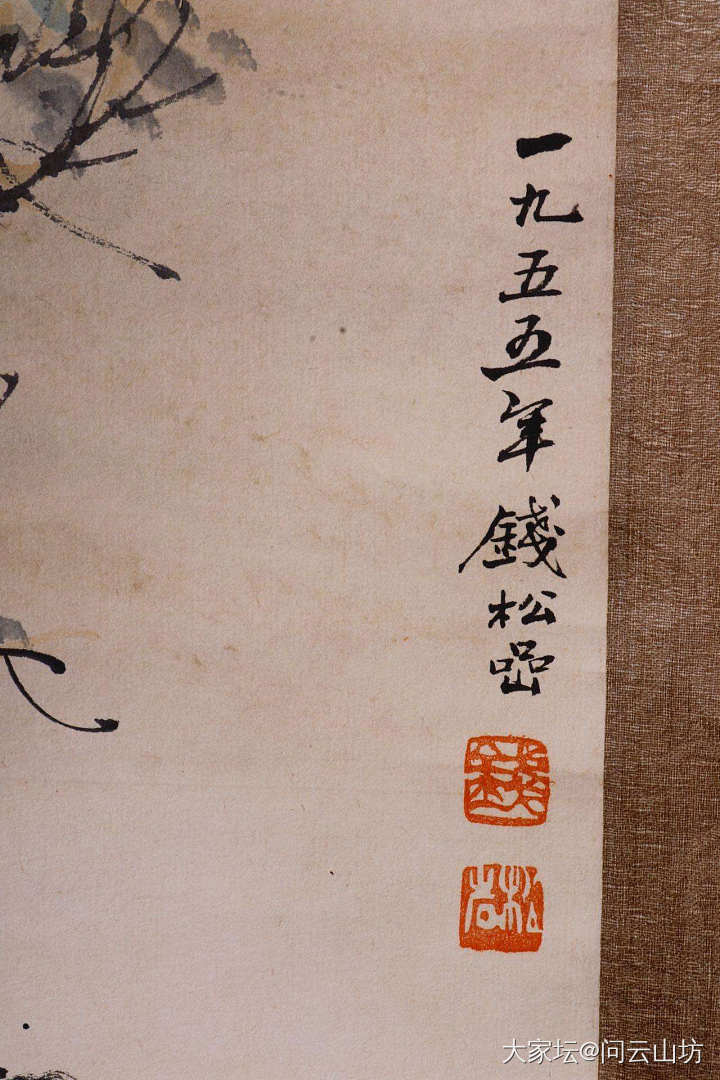 一九五五年錢松嵒
錢
松嵒
大家坛@问云山坊